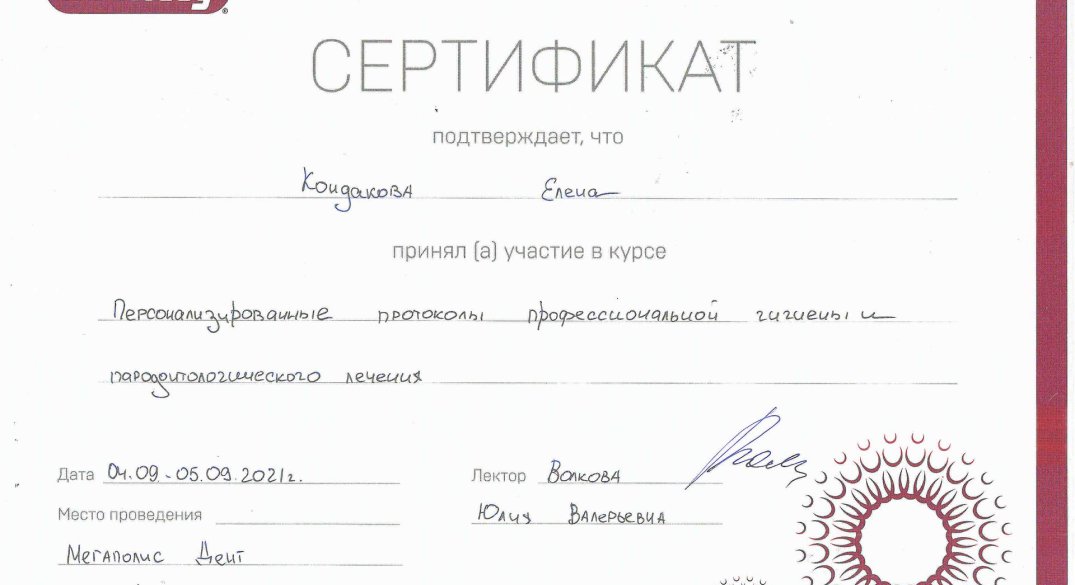 СЕРТИФИКАТ
подтверждает, что
Кондакова Елена
принял (а) участие в курсе
Персонализированные протоколы профессиональной гигиены и
пародонтологического лечения
Дата 04.09.-05.09.2021г.
Лектор Волкова
Место проведения
Юлия Валерьевна
Мегаполис Дент